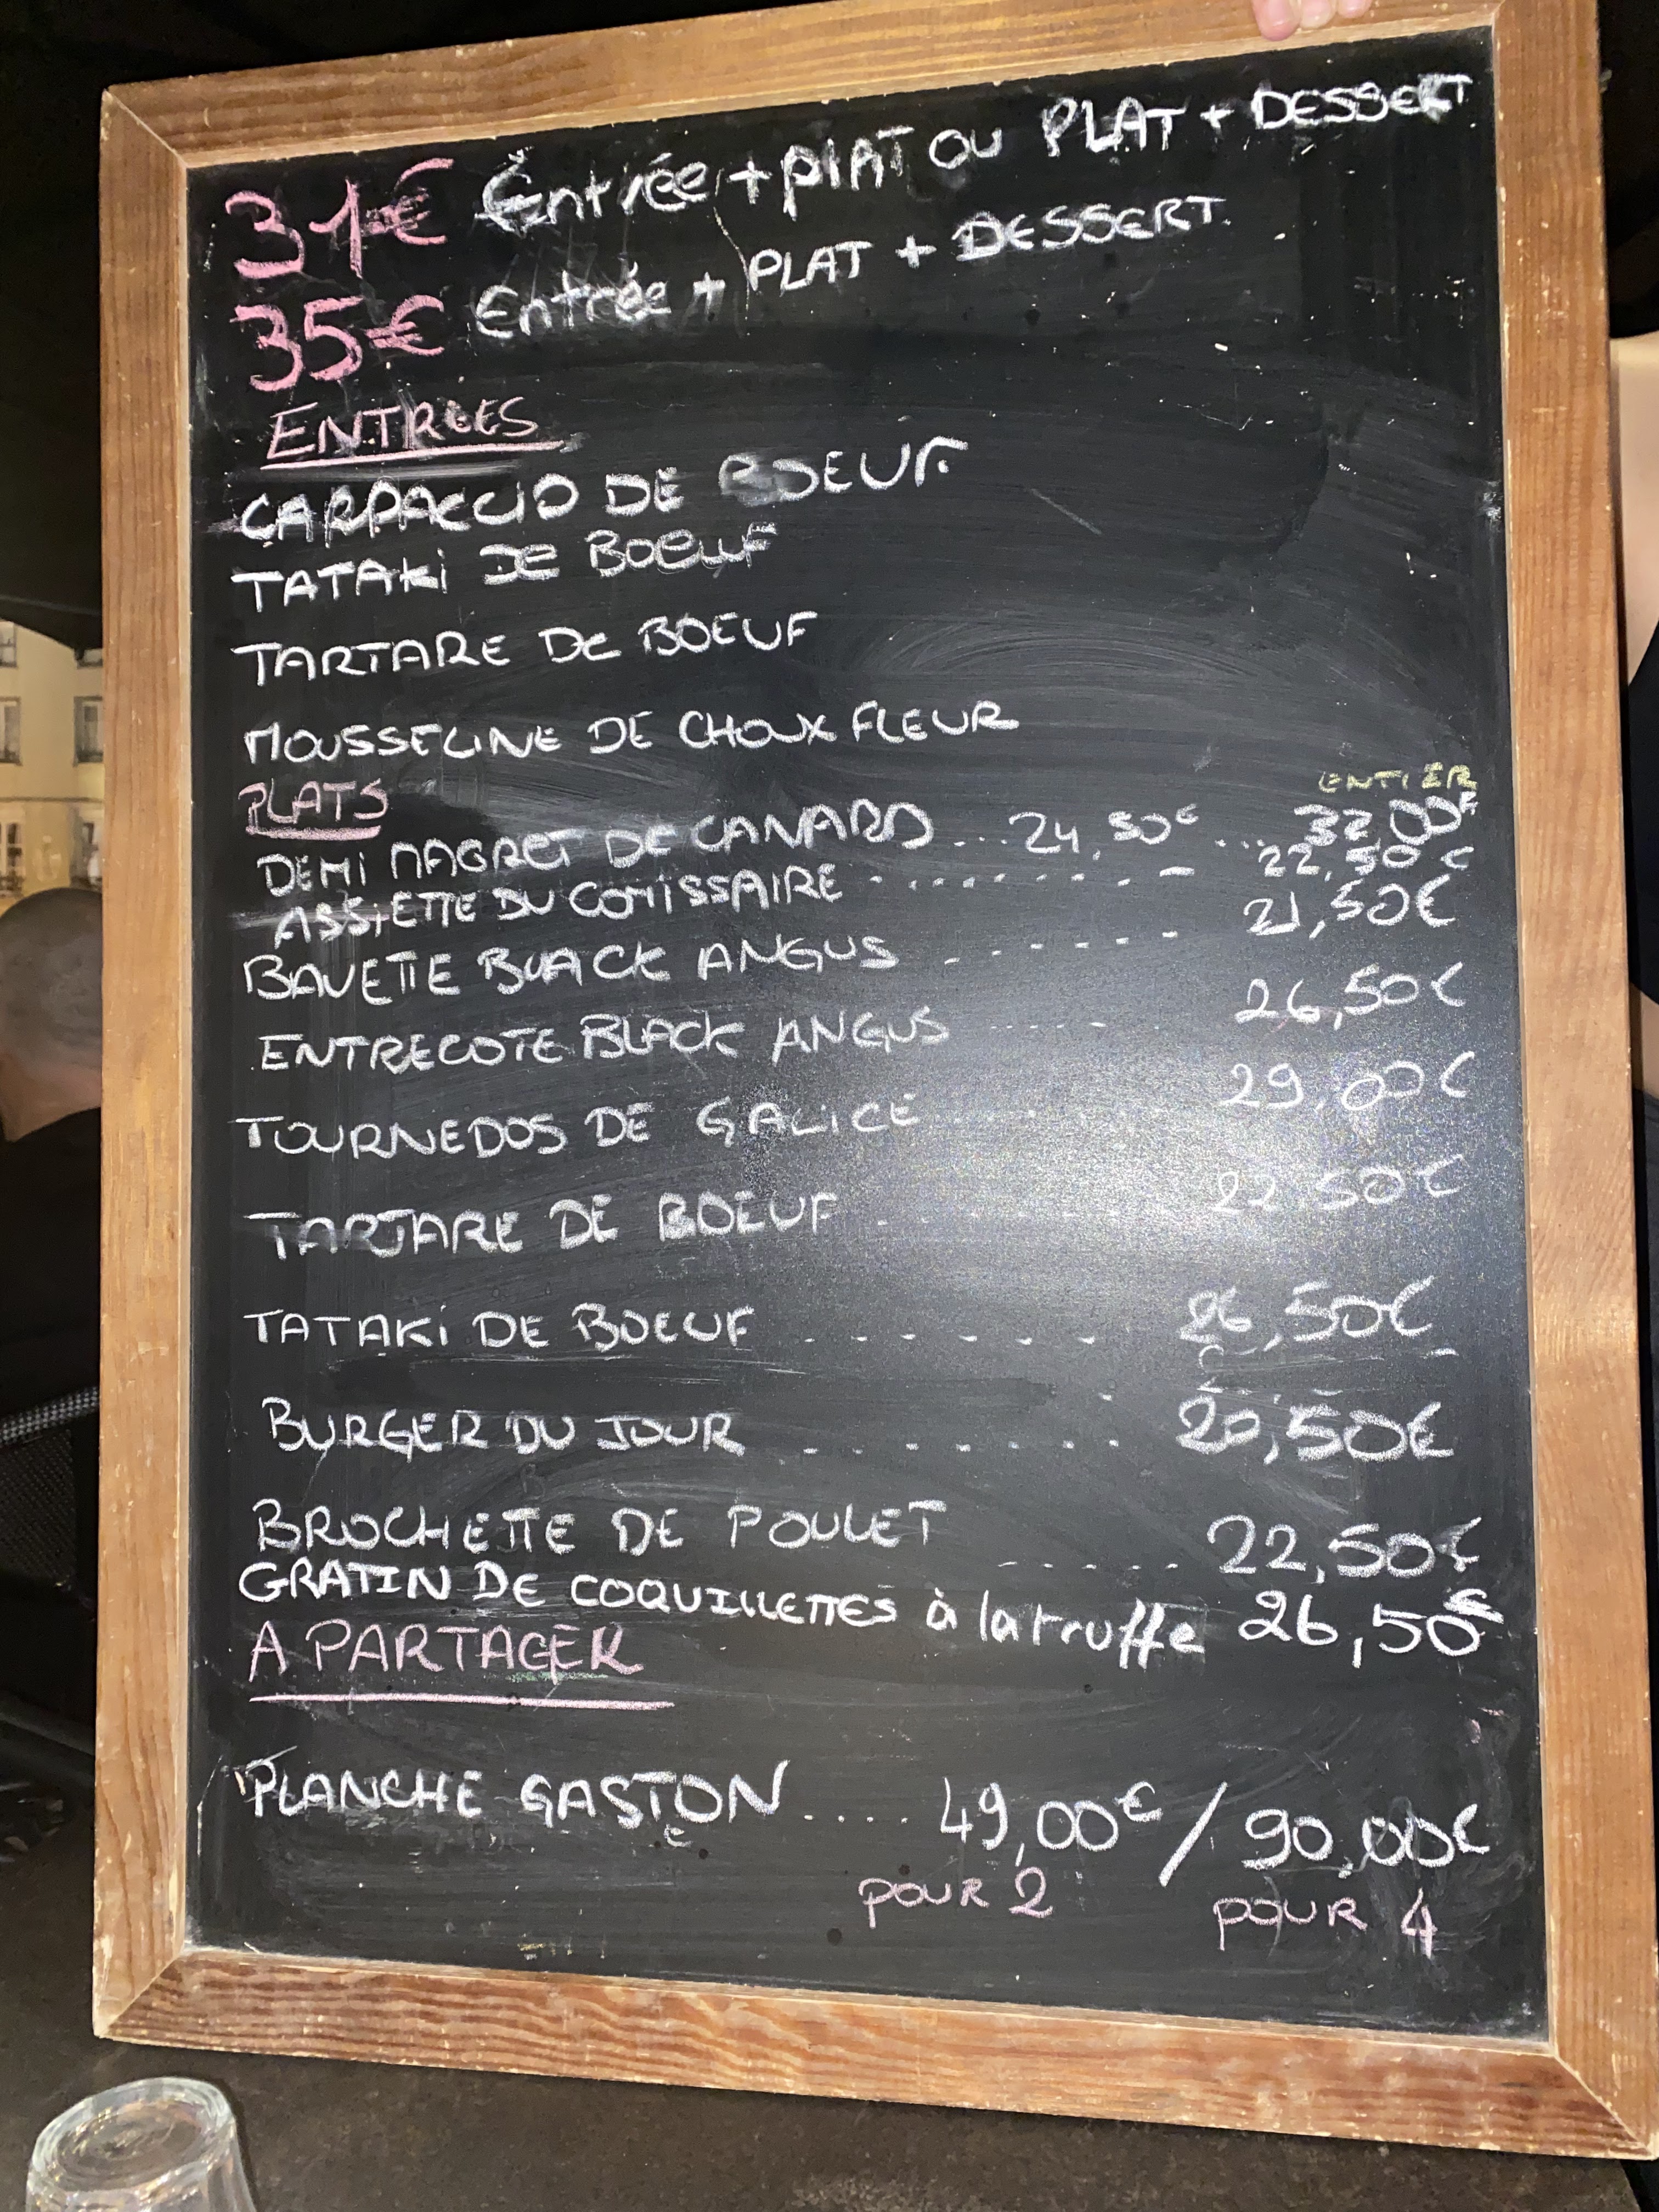 31€ Entrée + PlAT OU PLAT + DESSERT
35€ Entrée + PLAT + DESSERT
ENTREES
CARPACCIO DE BOEUF
TATAKi DE BOEUF
TARTARE DE BOEUF
MOUSSELINE DE CHOUX FLEUR
PLATS
ENTIER
DEMI MAGRET DE CANARD ... 24,50€ ... 32,00€
ASSIETTE DU COMISSAIRE ......... 22,50€
BAVETTE BLACK ANGUS ...... 21,50€
ENTRECOTE BLACK ANGUS ...... 26,50€
TOURNEDOS DE GALICE ..... 29,00€
TARTARE DE BOEUF ..... 22,50€
TATAKi DE BOEUF ....... 26,50€
BURGER DU JOUR ....... 20,50€
BROCHETTE DE POULET ...... 22,50€
GRATIN DE COQUILLETTES à la truffe 26,50€
A PARTAGER
PLANCHE GASTON .... 49,00€ / 90,00€
POUR 2 POUR 4